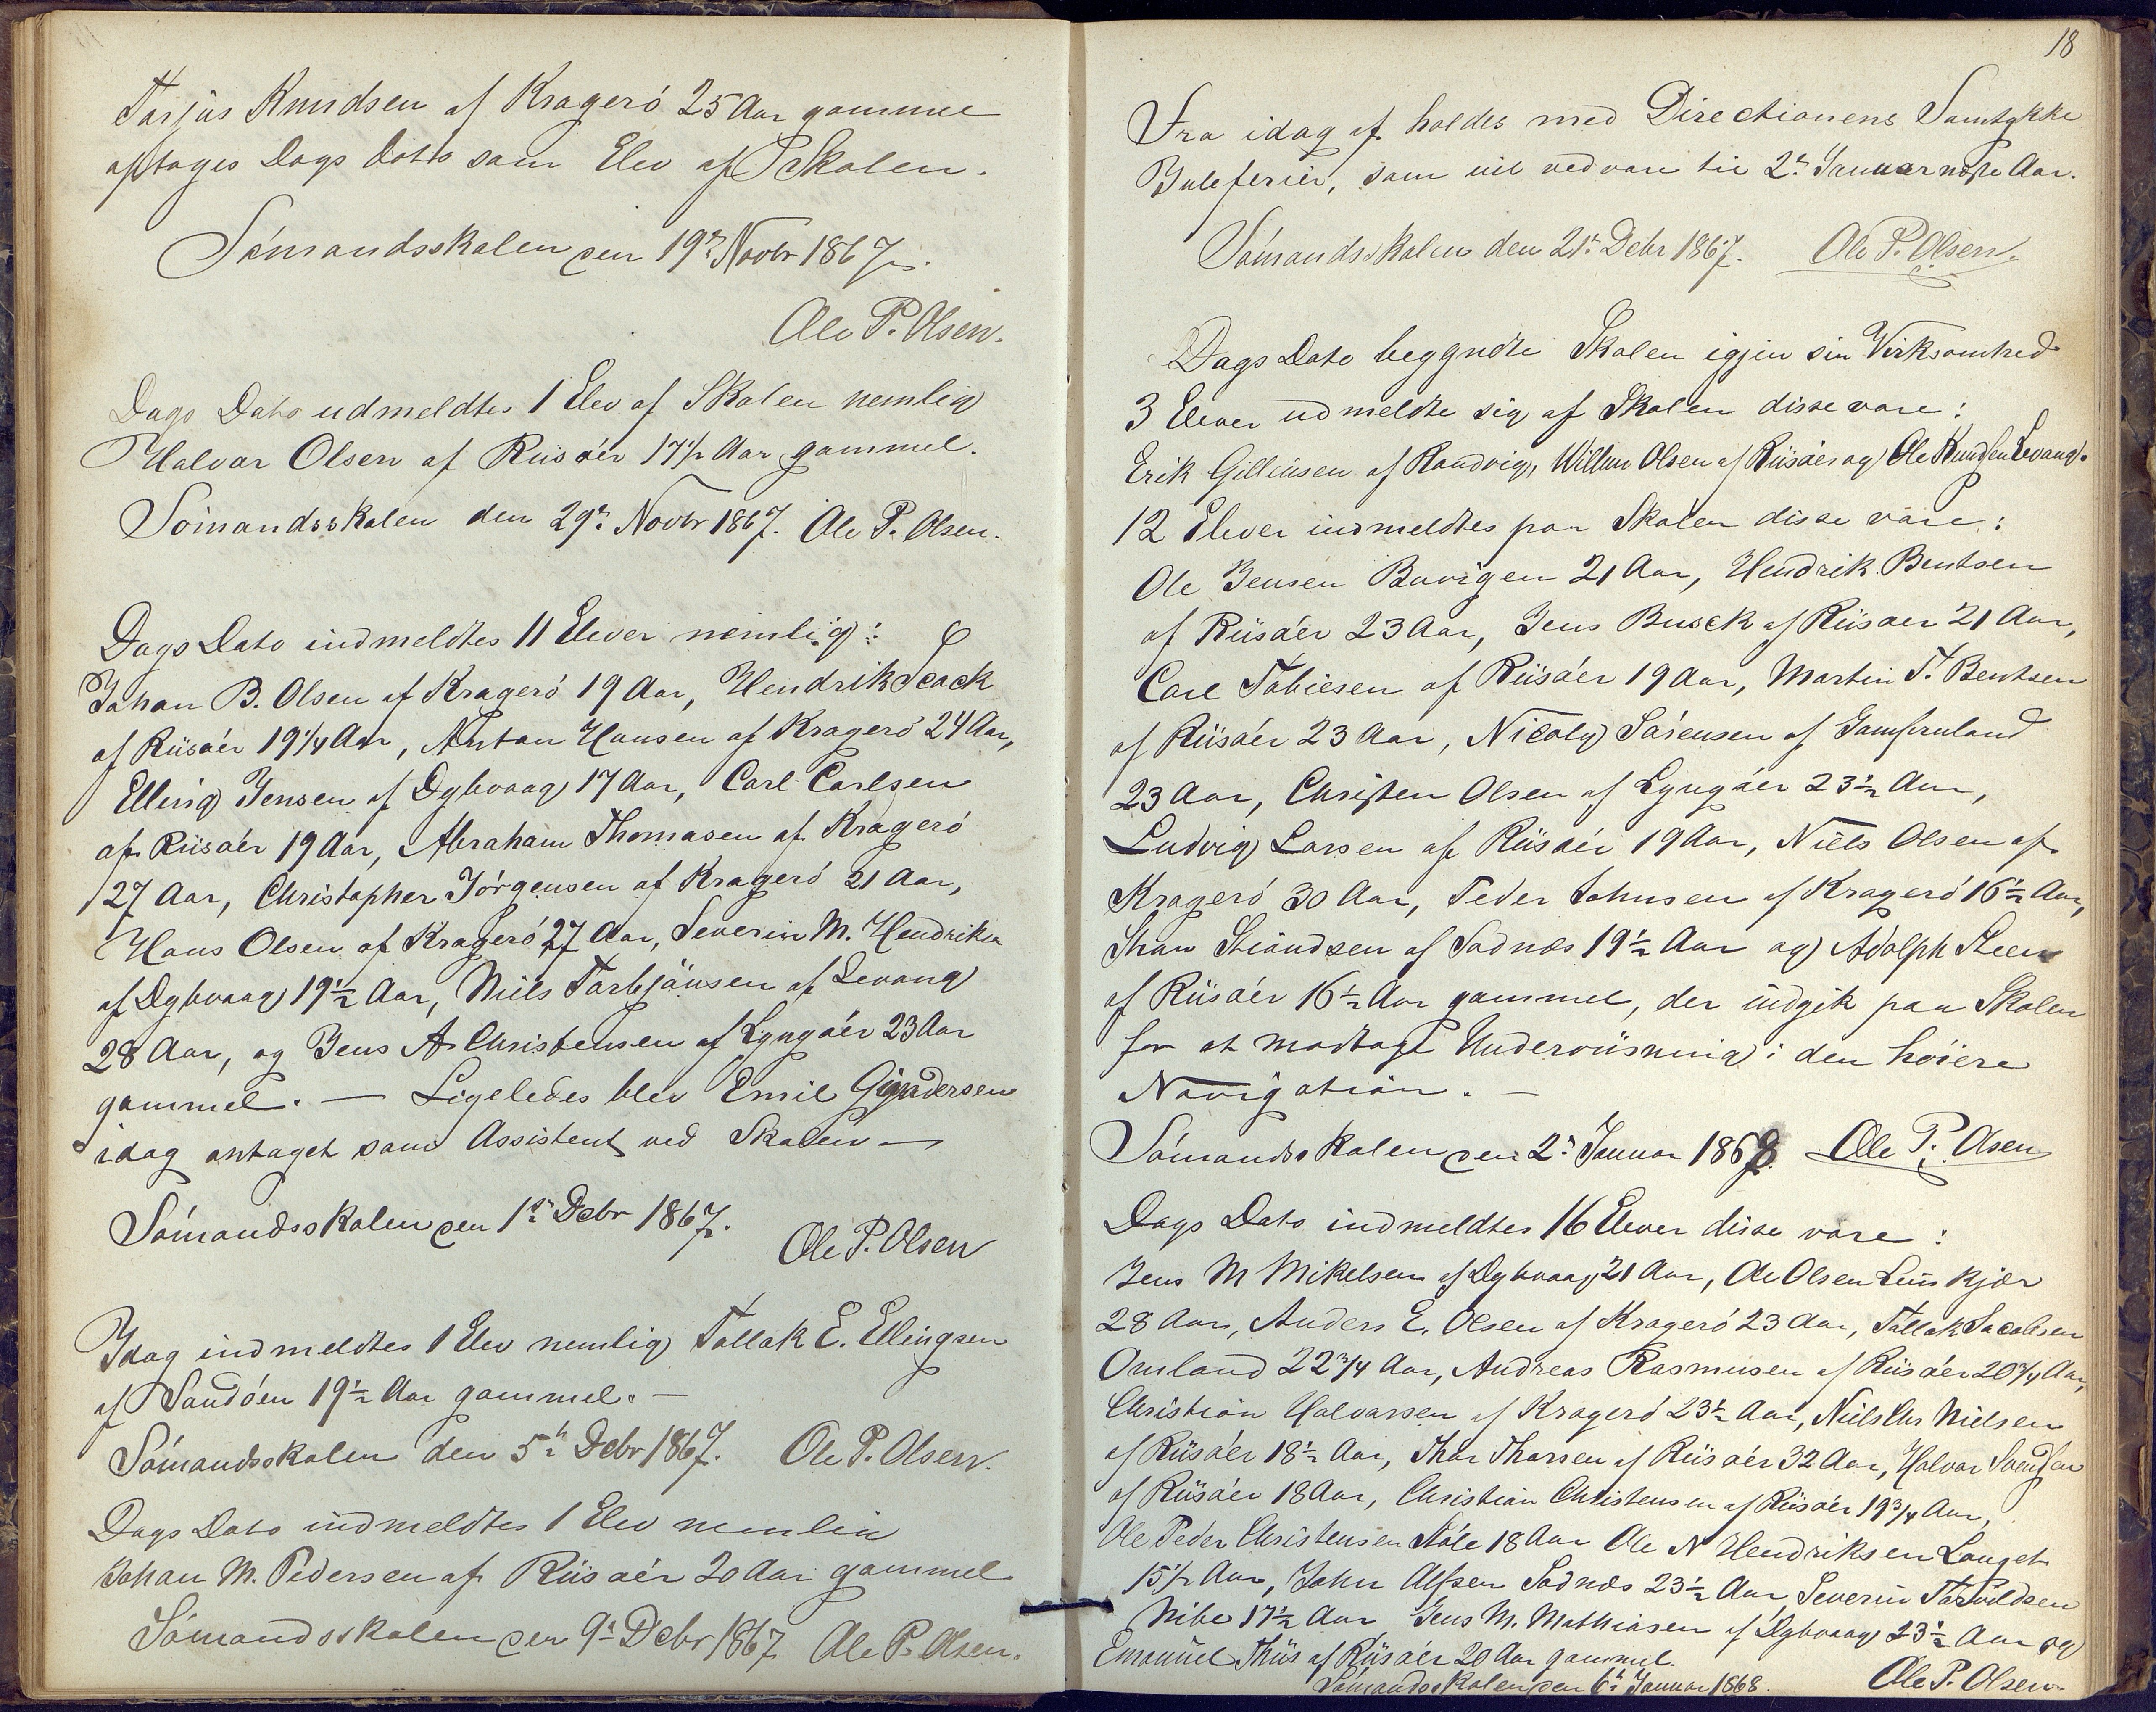 Tarjus Knudsen af Kragerö 25 Aar gammel
optages Dags Dato som Elev af Skolen.
Sömandsskolen den 19de Novbr 1867.
Ole P. Olsen.
Dags Dato udmeldtes 1 Elev af Skolen nemlig
Halvor Olsen af Riisöer 17 1/2 Aar gammel.
Sömandsskolen den 29de Novbr 1867. Ole P. Olsen.
Dags Dato indmeldtes 11 Elever nemlig:
Johan B. Olsen af Kragerö 19 Aar, Hendrik
af Riisöer 19 1/4 Aar, Anton Hansen af Kragerö 24 Aar,
Elling Jensen af Dybvaag 17 Aar, Carl Carlsen
af Riisöer 19 Aar, Abraham Thomasen af Kragerö
27 Aar, Christopher Jörgensen af Kragerö 21 Aar,
Hans Olsen af Kragerö 27 Aar, Severin M. Hendriksen
af Dybvaag 19 1/2 Aar, Niels Torbjönsen af Levang
28 Aar, og Jens A Christensen af Lyngöer 23 Aar
gammel. — Ligeledes blev Emil Gundersen
idag antaget som Assistent ved Skolen —
Sömandsskolen den 1ste Debr 1867.
Ole P. Olsen
Idag indmeldtes 1 Elev nemlig Tallak E. Ellingsen
af Sandöen 19 1/2 Aar gammel. —
Sömandsskolen den 5te Debr 1867. Ole P. Olsen.
Dags Dato indmeldtes 1 Elev nemlig
Johan M. Pedersen af Riisöer 20 Aar gammel
Sömandsskolen den 9de Debr 1867 Ole P. Olsen.
18
Fra idag af holdes med Directionens Samtykke
Juleferier, som vil vedvare til 2den Januar næste Aar.
Sömandsskolen den 21de Debr 1867. Ole P. Olsen.
Dags Dato begyndte Skolen igjen sin Virksomhed
3 Elever udmeldte sig af Skolen disse vare:
Erik Gilliusen af Randvig, Willum Olsen af Riisöer og Ole Knudsen Levang.
12 Elever indmeldtes paa Skolen disse vare:
Ole Jensen Buvigen 21 Aar, Hendrik Bentsen
af Riisöer 23 Aar, Jens Busck af Riisöer 21 Aar,
Carl Tobiesen af Riisöer 19 Aar, Martin T. Bentsen
af Riisöer 23 Aar, Nicoly Sörensen af Jomfruland
23 Aar, Christen Olsen af Lyngöer 23 1/2 Aar,
Ludvig Larsen af Riisöer 19 Aar, Niels Olsen af
Kragerö 30 Aar, Peder Johnsen af Kragerö 16 1/2 Aar,
af Sadnæs 19 1/2 Aar og Adolph Steen
af Riisöer 16 1/2 Aar gammel, der indgik paa Skolen
for at modtage Underviisning i den höiere
Navigation. —
Sömandsskolen den 2den Januar 1868. Ole P. Olsen
Dags Dato indmeldtes 16 Elever disse vare:
Jens M Mikelsen af Dybvaag 21 Aar, Ole Olsen Leuskjær
28 Aar, Anders E. Olsen af Kragerö 23 Aar, Tallak Jacobsen
Omland 22 3/4 Aar, Andreas Rasmusen af Riisöer 20 3/4 Aar,
Christian Halvorsen af Kragerö 23 1/2 Aar, Niels Chr Nielsen
af Riisöer 18 1/2 Aar, Thor Thorsen af Riisöer 32 Aar, Halvor Svendsen
af Riisöer 18 Aar, Christian Christensen af Riisöer 19 3/4 Aar,
Ole Peder Christensen Stöle 18 Aar Ole N Hendriksen Langet
15 1/2 Aar, John Alfsen Sadnæs 23 1/2 Aar, Severin Tarvildsen
Nibe 17 1/2 Aar Jens M. Mathiasen af Dybvaag 23 1/2 Aar og
Emanuel Thiis af Riisöer 20 Aar gammel.
Sömandsskolen den 6te Januar 1868. Ole P. Olsen